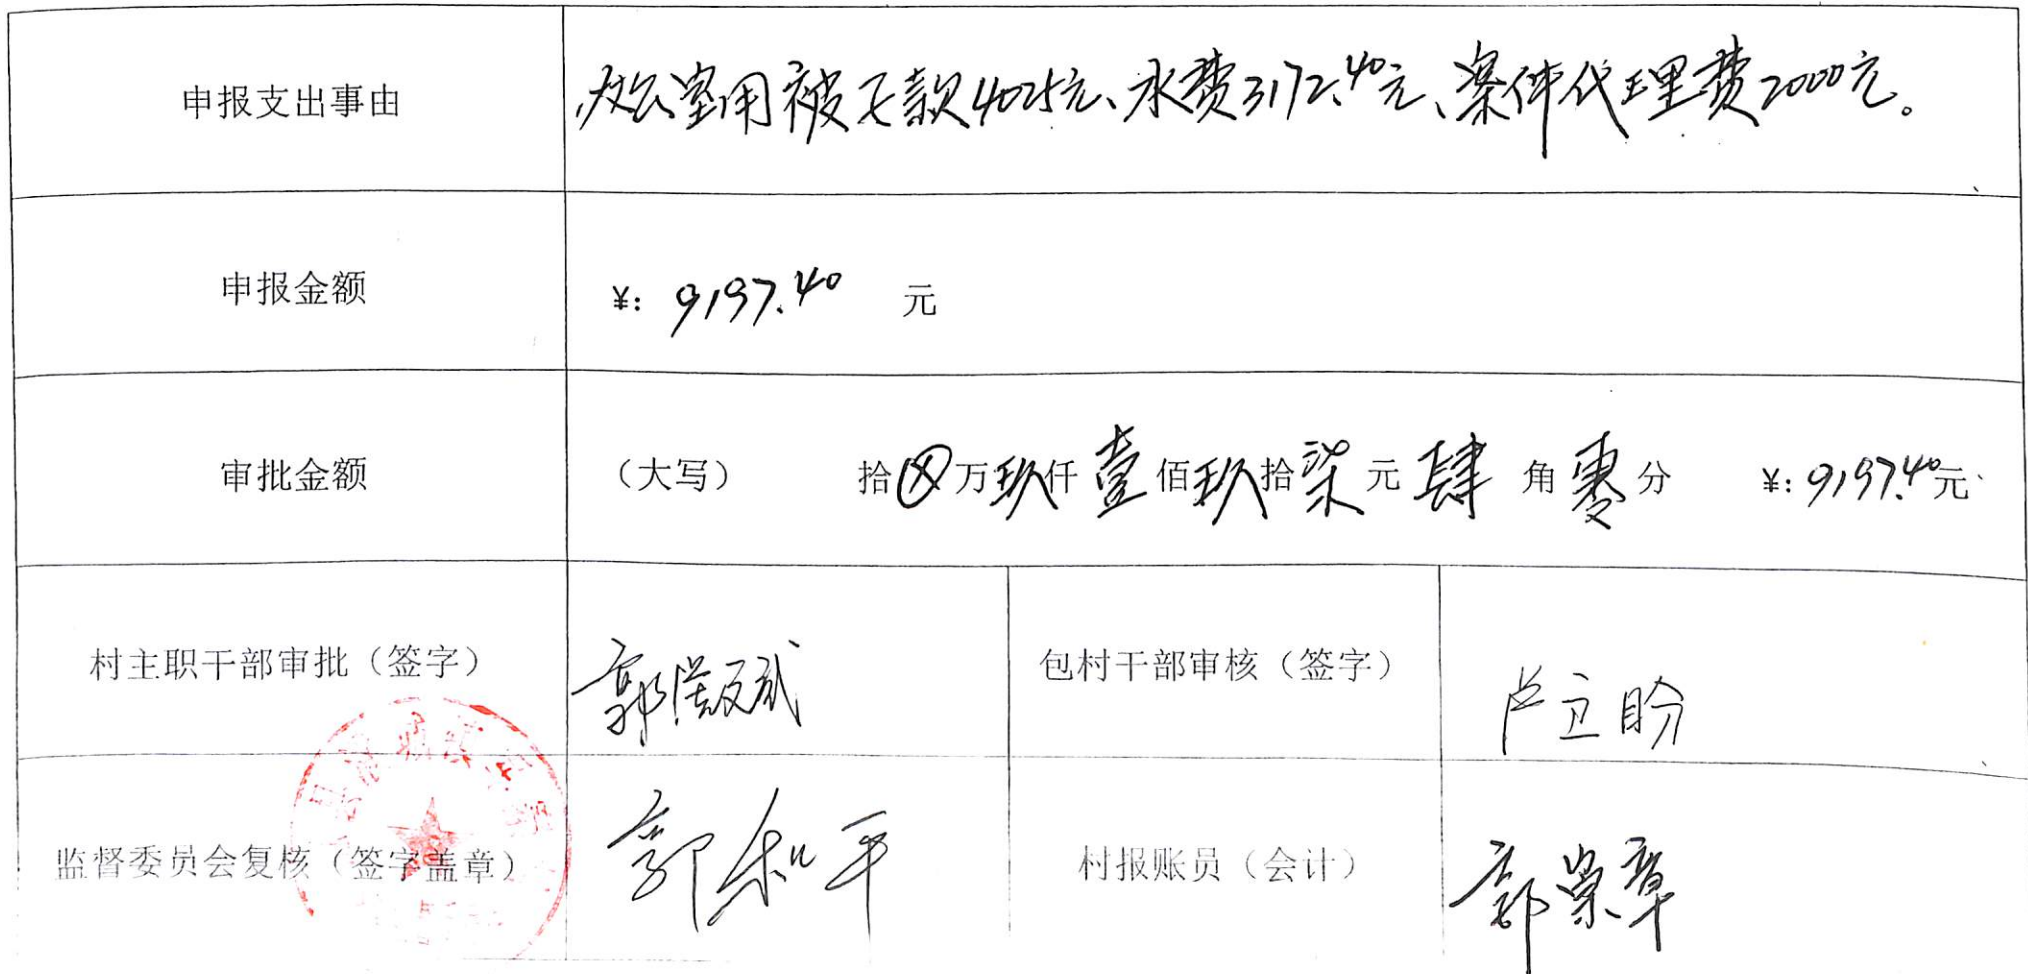 申报支出事由
办公室用被子款4025元、水费3172.40元、案件代理费2000元。
申报金额
¥: 9197.40 元
审批金额
（大写） 拾⊗万玖仟壹佰玖拾柒元肆角零分 ¥: 9197.40元
村主职干部审批（签字）
郭
包村干部审核（签字）
卢卫盼
监督委员会复核（签字盖章）
郭和平
村报账员（会计）
郭荣章